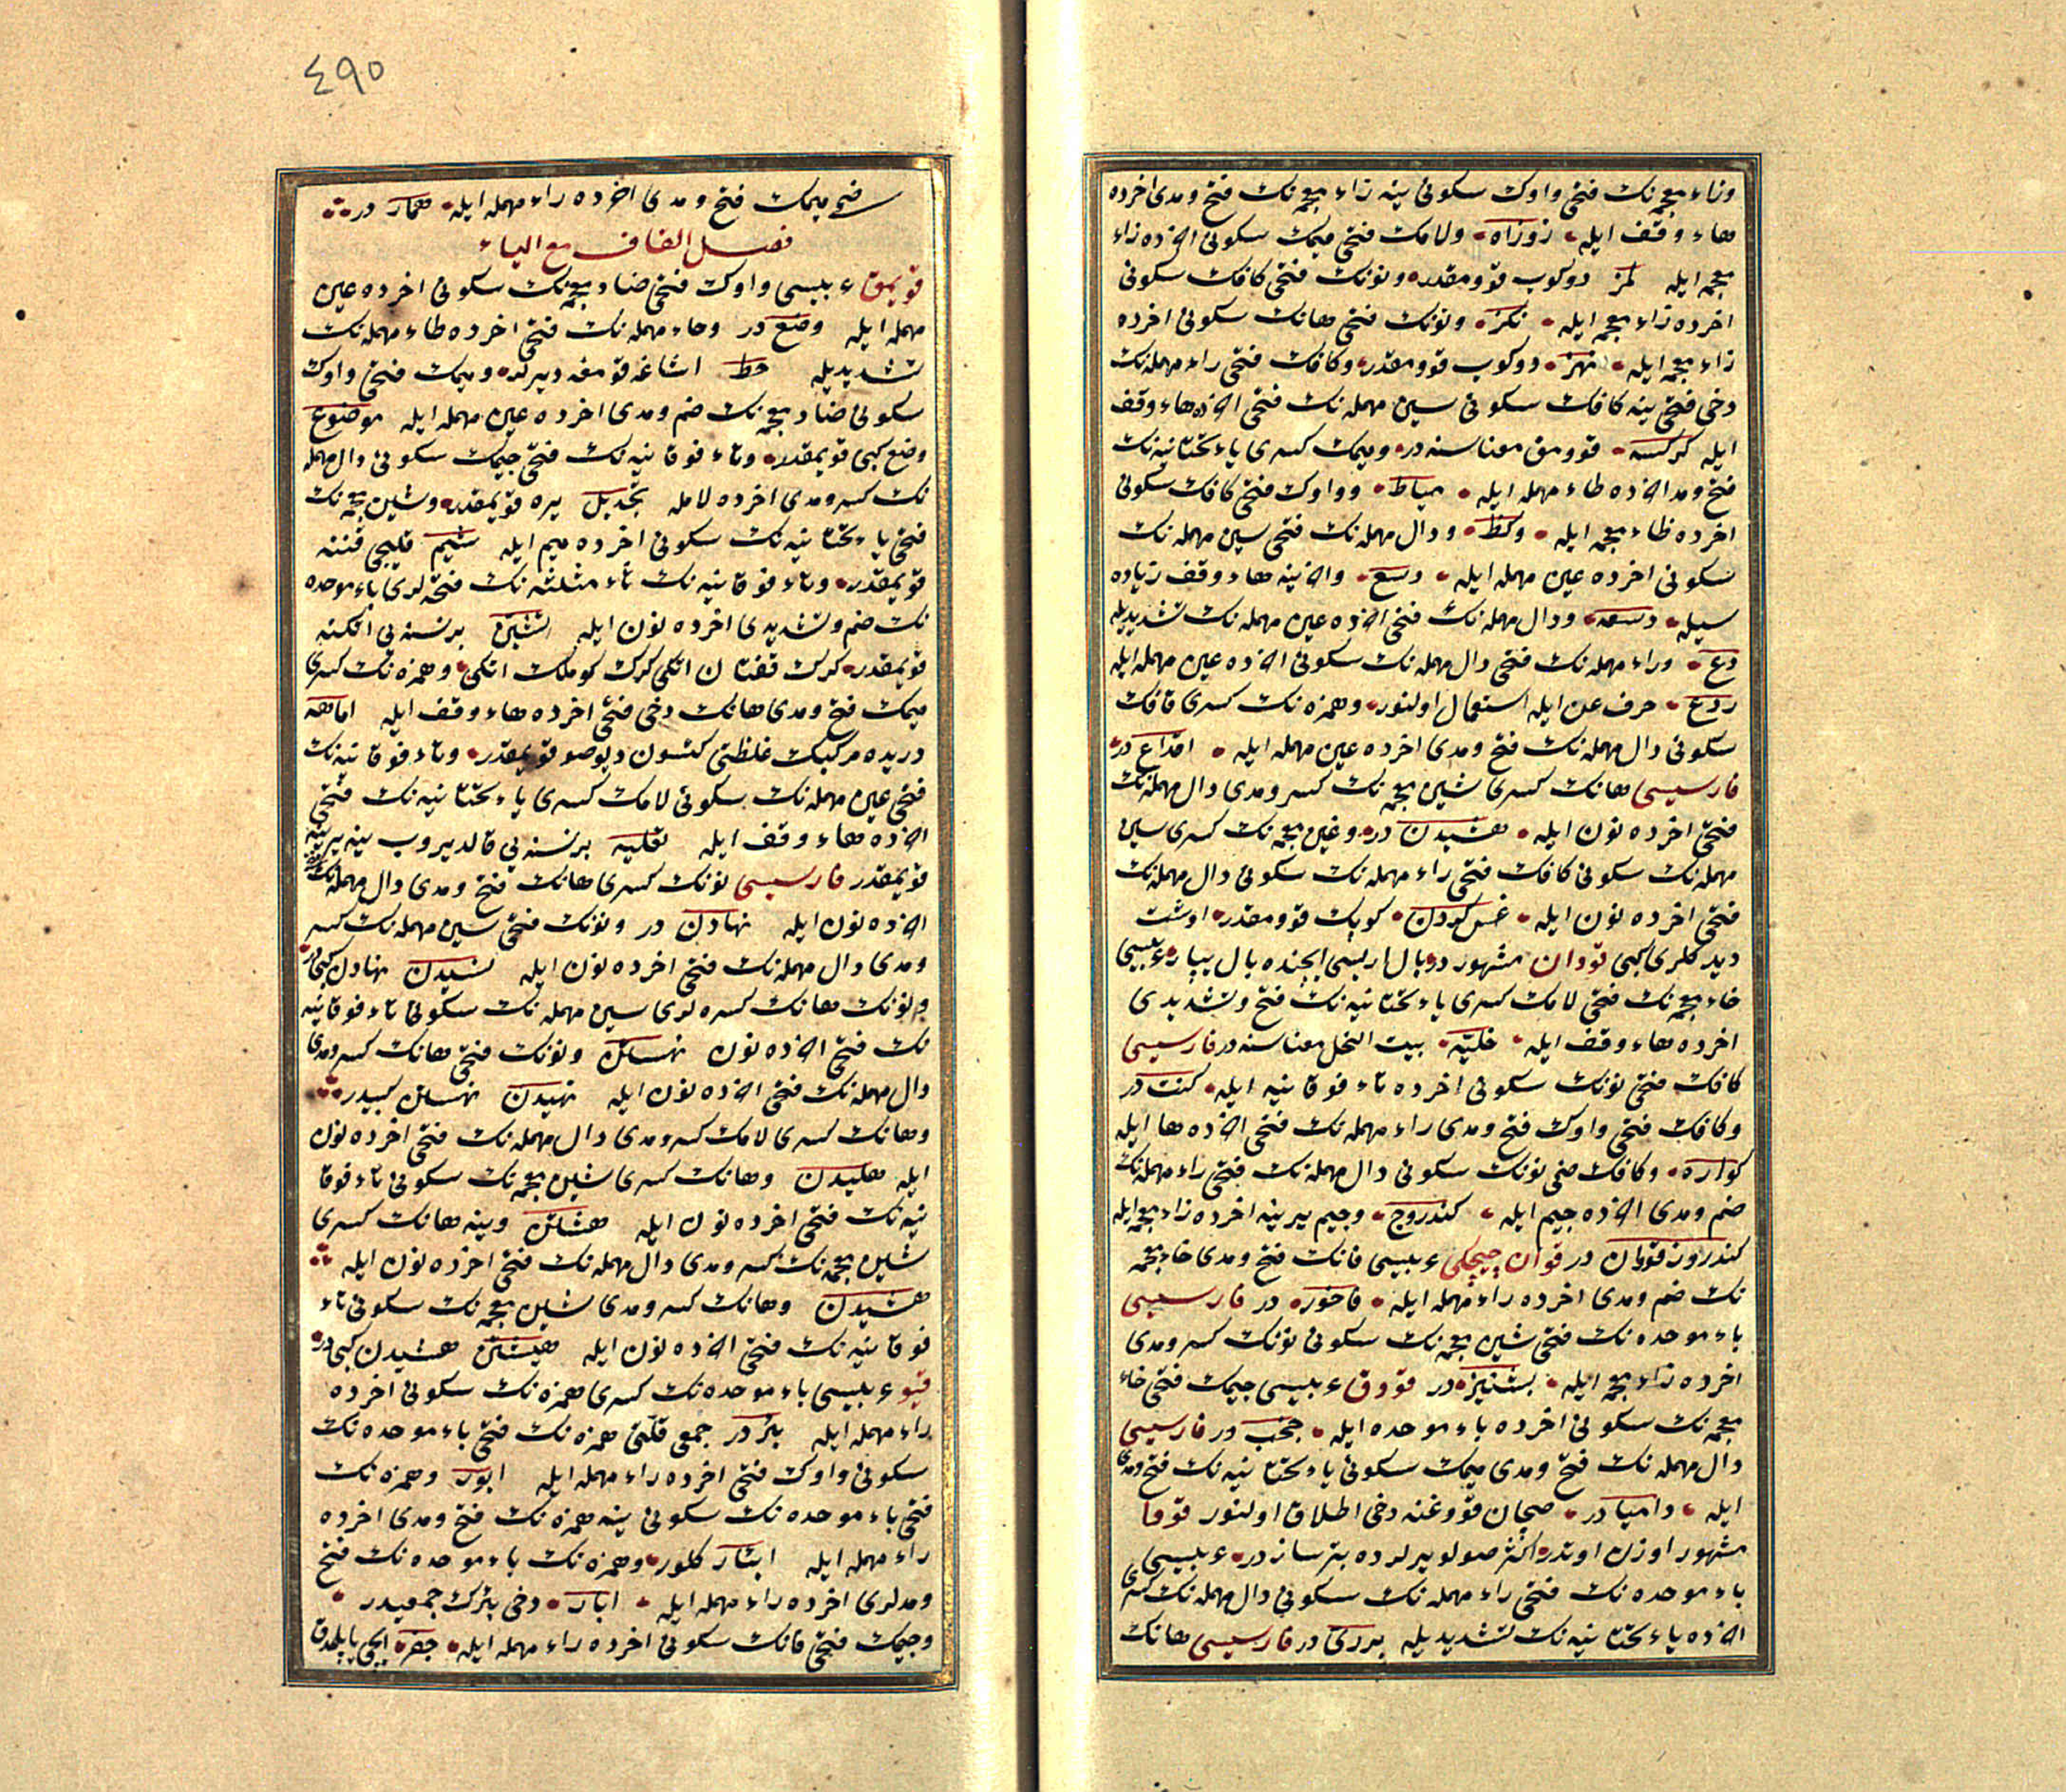 وزاء معجمه نك فتحى واوك سكونى ينه زاء معجمه نك فتح ومدى اخرده
هاء وقف ايله زوزاه ولامك فتحى ميمك سكونى اخرده زاء
معجمه ايله لمز دوكوب قوومقدر ونونك فتحى كافك سكونى
اخرده زاء معجمه ايله نكز ونونك فتحى هانك سكونى اخرده
زاء معجمه ايله نهز دوكوب قوومقدر وكافك فتحى راء مهمله نك
دخى فتحى ينه كافك سكونى سين مهمله نك فتحى اخرده هاء وقف
ايله كركسه قوومق معناسنه در وميمك كسرى ياء تحتانيه نك
فتح ومد اخرده طاء مهمله ايله مياط وواوك فتحى كافك سكونى
اخرده ظاء معجمه ايله وكظ ودال مهمله نك فتحى سين مهمله نك
سكونى اخرده عين مهمله ايله دسع واخرينه هاء وقف زياده
سيله دسعه ودال مهمله نك فتحى اخرده عين مهمله نك تشديديله
دع وراء مهمله نك فتحى دال مهمله نك سكونى اخرده عين مهمله ايله
ردع حرف عن ايله استعمال اولنور وهمزه نك كسرى قافك
سكونى دال مهمله نك فتح ومدى اخرده عين مهمله ايله اقداع در
فارسيسى هانك كسرى شين معجمه نك كسر ومدى دال مهمله نك
فتحى اخرده نون ايله هشيدن در وغين معجمه نك كسرى سين
مهمله نك سكونى كافك فتحى راء مهمله نك سكونى دال مهمله نك
فتحى اخرده نون ايله غسكردن كوپك قوومقدر اوشت
ديدكلرى كبى قووان مشهور در بال اريسى ايچنده بال يپار عربيسى
خاء معجمه نك فتحى لامك كسرى ياء تحتانيه نك فتح وتشديدى
اخرده هاء وقف ايله خليّه بيت النحل معناسنه در فارسيسى
كافك فتحى نونك سكونى اخرده تاء فوقانيه ايله كنت در
وكافك فتحى واوك فتح ومدى راء مهمله نك فتحى اخرده ها ايله
كواره وكافك ضمى نونك سكونى دال مهمله نك فتحى راء مهمله نك
ضم ومدى اخرده جيم ايله كندروج وجيم يرينه اخرده زاء معجمه ايله
كندروز قووان در قوان چيچكى عربيسى فانك فتح ومدى خاء معجمه
نك ضم ومدى اخرده راء مهمله ايله فاخور در فارسيسى
باء موحده نك فتحى شين معجمه نك سكونى نونك كسر ومدى
اخرده زاء معجمه ايله بشنيز در قووق عربيسى جيمك فتحى خاء
معجمه نك سكونى اخرده باء موحده ايله جخب در فارسيسى
دال مهمله نك فتح ومدى ميمك سكونى ياء تحتانيه نك فتح ومدى
ايله داميا در صچان قووغنه دخى اطلاق اولنور قوفا
مشهور اوزن اوتدر اكثر صولو يرلرده بتر ساز در عربيسى
باء موحده نك فتحى راء مهمله نك سكونى دال مهمله نك كسرى
اخرده ياء تحتانيه نك تشديديله بردى در فارسيسى هانك
٤٩٥
ضمى ميمك فتح ومدى اخرده راء مهمله ايله همار در
فصل القاف مع الياء
قويمق عربيسى واوك فتحى ضاد معجمه نك سكونى اخرده عين
مهمله ايله وضع در وحاء مهمله نك فتحى اخرده طاء مهمله نك
تشديديله حط اشاغه قومغه ديرلر وميمك فتحى واوك
سكونى ضاد معجمه نك ضم ومدى اخرده عين مهمله ايله موضوع
وضع كبى قويمقدر وتاء فوقانيه نك فتحى جيمك سكونى دال مهمله
نك كسر ومدى اخرده لامله تجديل يره قويمقدر وشين معجمه نك
فتحى ياء تحتانيه نك سكونى اخرده ميم ايله شيم قليجى قننه
قويمقدر وتاء فوقانيه نك ثاء مثلثه نك فتحه لرى باء موحده
نك ضم وتشديدى اخرده نون ايله تثبّن برنسنه يى اتكنه
قويمقدر كرك قفتان اتكى كرك كوملك اتكى وهمزه نك كسرى
ميمك فتح ومدى هانك دخى فتحى اخرده هاء وقف ايله امامهه
دريده مركبك غلظتى كتسون ديو صو قويمقدر وتاء فوقانيه نك
فتحى عين مهمله نك سكونى لامك كسرى ياء تحتانيه نك فتحى
اخرده هاء وقف ايله تعليه برنسنه يى قالديروب ينه يرينه
قويمقدر فارسيسى نونك كسرى هانك فتح ومدى دال مهمله نك
اخرده نون ايله نهادن در ونونك فتحى سين مهمله نك كسر
ومدى دال مهمله نك فتحى اخرده نون ايله نسيدن نهادن كبى در
ونونك هانك كسره لرى سين مهمله نك سكونى تاء فوقانيه
نك فتحى اخرده نون نهستن ونونك فتحى هانك كسر ومدى
دال مهمله نك فتحى اخرده نون ايله نهيدن نهستن كبيدر
وهانك كسرى لامك كسر ومدى دال مهمله نك فتحى اخرده نون
ايله هليدن وهانك كسرى شين معجمه نك سكونى تاء فوقا
نيه نك فتحى اخرده نون ايله هشتن وينه هانك كسرى
شين معجمه نك كسر ومدى دال مهمله نك فتحى اخرده نون ايله
هشيدن وهانك كسر ومدى شين معجمه نك سكونى تاء
فوقانيه نك فتحى اخرده نون ايله هيشتن هشيدن كبى در
قيو عربيسى باء موحده نك كسرى همزه نك سكونى اخرده
راء مهمله ايله بئر در جمعى قلتى همزه نك فتحى باء موحده نك
سكونى واوك فتحى اخرده راء مهمله ايله ابور وهمزه نك
فتحى باء موحده نك سكونى ينه همزه نك فتح ومدى اخرده
راء مهمله ايله ابئار كلور وهمزه نك باء موحده نك فتح
ومدلرى اخرده راء مهمله ايله ابار دخى بئرك جمعيدر
وجيمك فتحى فانك سكونى اخرده راء مهمله ايله جفر ايچى ياپلمدق